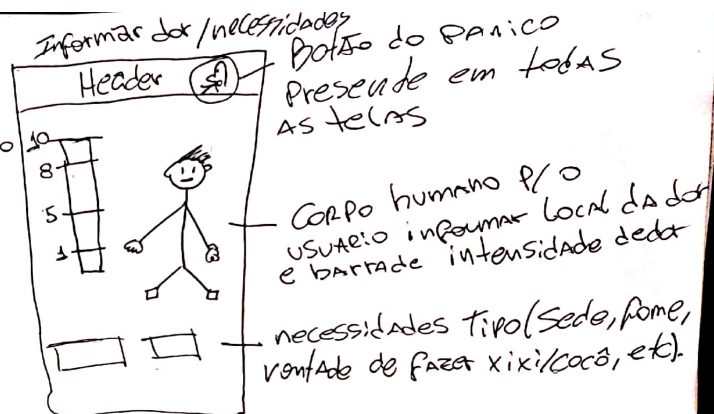 Informar dor/necessidades
Botão do Panico
Presende em todas
as telas
Header
10
8
5
1
Corpo humano p/ o
usuario informar local da dor
e barra de intensidade de dor
necessidades tipo (sede, fome,
vontade de fazer xixi/cocô, etc).